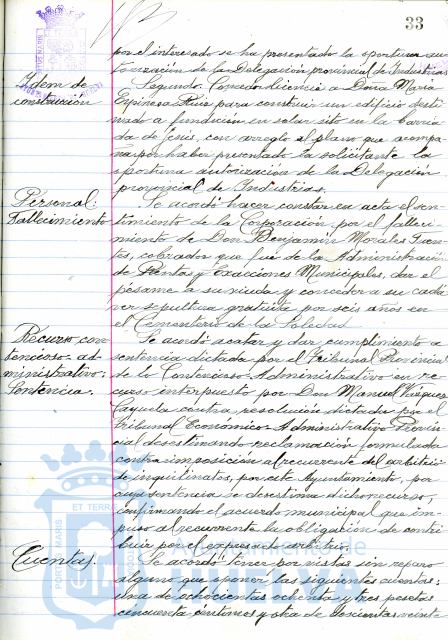 33
por el interesado se ha presentado la oportuna au-
torización de la Delegación provincial de Industrias
Idem de
construcción
Segundo. Conceder licencia a Doña María
Espinosa Ríos para construir un edificio desti-
nado a fundición en solar sito en la Barria-
da de Jesús, con arreglo al plano que acompa-
ña por haber presentado la solicitante la
oportuna autorización de la Delegación
provincial de Industrias.
Personal:
Fallecimiento
Se acordó hacer constar en acta el sen-
timiento de la Corporación por el falleci-
miento de Don Benjamín Morales Fuen-
tes, cobrador que fué de la Administración
de Rentas y Exacciones Municipales, dar el
pésame a su viuda y conceder a su cadá-
ver sepultura gratuita por seis años en
el Cementerio de la Soledad.
Recurso con-
tencioso-ad-
ministrativo:
Sentencia.
Se acordó acatar y dar cumplimiento a
sentencia dictada por el Tribunal Provincial
de lo Contencioso-Administrativo en re-
curso interpuesto por Don Manuel Vázquez
Cayuela contra resolución dictada por el
Tribunal Económico-Administrativo Provin-
cial desestimando reclamación formulada
contra imposición al recurrente del arbitrio
de inquilinatos, por este Ayuntamiento, por
cuya sentencia se desestima dicho recurso,
confirmando el acuerdo municipal que im-
puso al recurrente la obligación de contri-
buir por el expresado arbitrio.
Cuentas.
Se acordó tener por vistas sin reparo
alguno que oponer las siguientes cuentas:
una de ochocientas ochenta y tres pesetas
cincuenta céntimos y otra de doscientas veinte
PORTUS MARIS ET TERRAE
Ayuntamiento de
HUELVA